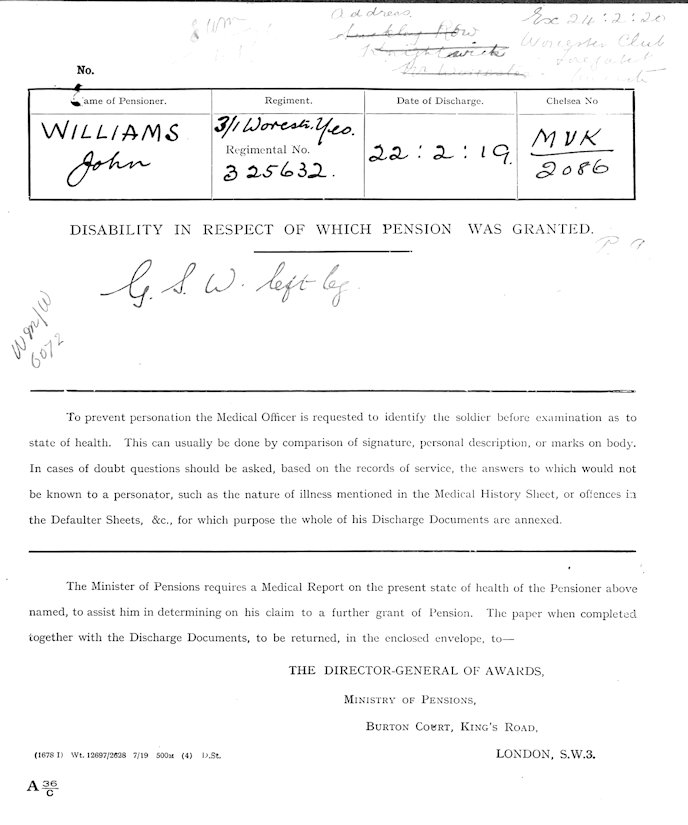 Address.
Ex 24:2:20
Row
Worcester Club
Knightwick
No.
Name of Pensioner. Regiment. Date of Discharge. Chelsea No
WILLIAMS 3/1 Worcstr. Yeo. 22:2:19. MVK
John Regimental No. 2086
325632.
DISABILITY IN RESPECT OF WHICH PENSION WAS GRANTED.
G. S. W. left leg.
WM/W
6072
To prevent personation the Medical Officer is requested to identify the soldier before examination as to
state of health. This can usually be done by comparison of signature, personal description, or marks on body.
In cases of doubt questions should be asked, based on the records of service, the answers to which would not
be known to a personator, such as the nature of illness mentioned in the Medical History Sheet, or offences in
the Defaulter Sheets, &c., for which purpose the whole of his Discharge Documents are annexed.
The Minister of Pensions requires a Medical Report on the present state of health of the Pensioner above
named, to assist him in determining on his claim to a further grant of Pension. The paper when completed
together with the Discharge Documents, to be returned, in the enclosed envelope, to—
THE DIRECTOR-GENERAL OF AWARDS,
MINISTRY OF PENSIONS,
BURTON COURT, KING'S ROAD,
LONDON, S.W.3.
(1678 I) Wt. 12697/2628 7/19 500M (4) D.St.
A 36/C